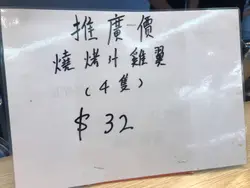 推廣價
燒烤汁雞翼
(4隻)
$32